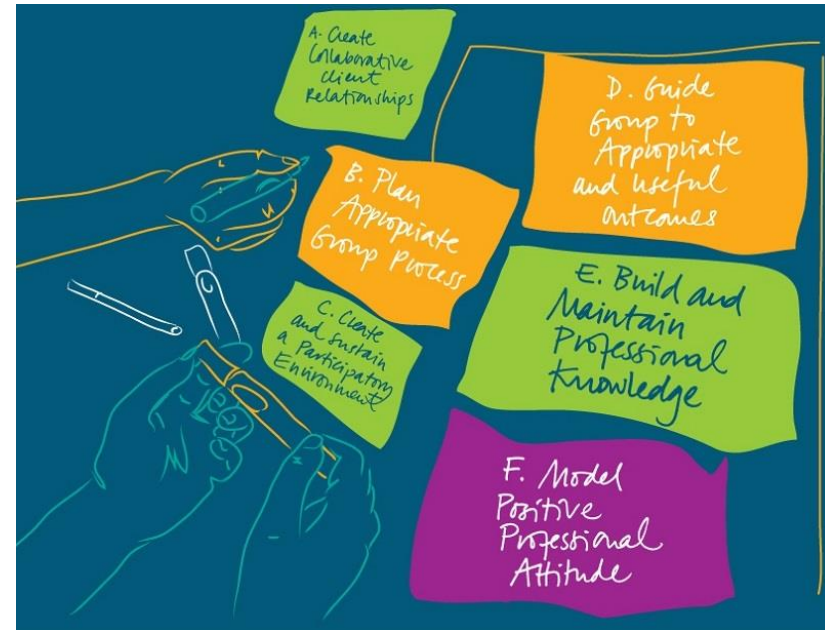 A. Create
Collaborative
Client
Relationships
B. Plan
Appropriate
Group Process
C. Create
and Sustain
a Participatory
Environment
D. Guide
Group to
Appropriate
and Useful
Outcomes
E. Build and
Maintain
Professional
Knowledge
F. Model
Positive
Professional
Attitude